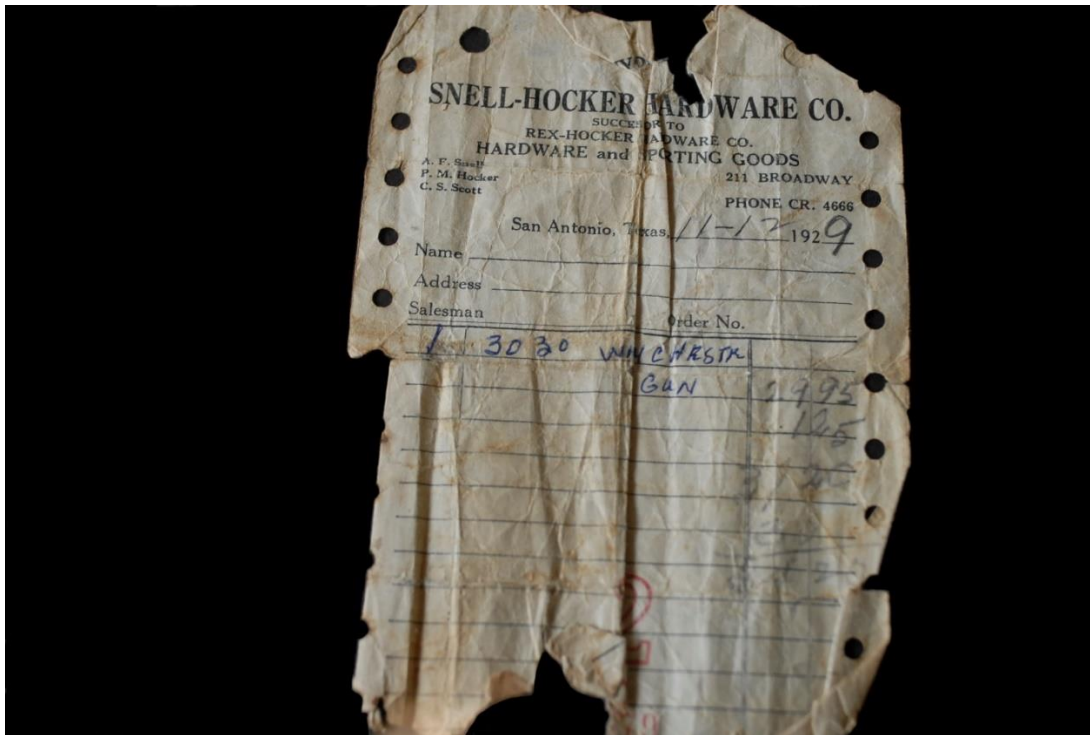 NO.
SNELL-HOCKER HARDWARE CO.
SUCCESSOR TO
REX-HOCKER HADWARE CO.
HARDWARE and SPORTING GOODS
A. F. Snell
P. M. Hocker
C. S. Scott
211 BROADWAY
PHONE CR. 4666
San Antonio, Texas, 11-12 1929
Name
Address
Salesman Order No.
1 30 30 WINCHASTR
GUN 29 95
1 25